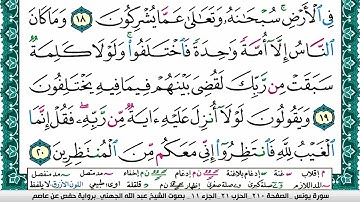 فِي ٱلْأَرْضِ ۚ سُبْحَٰنَهُۥ وَتَعَٰلَىٰ عَمَّا يُشْرِكُونَ ١٨ وَمَا كَانَ
ٱلنَّاسُ إِلَّآ أُمَّةً وَٰحِدَةً فَٱخْتَلَفُوا۟ ۚ وَلَوْلَا كَلِمَةٌ
سَبَقَتْ مِن رَّبِّكَ لَقُضِيَ بَيْنَهُمْ فِيمَا فِيهِ يَخْتَلِفُونَ
١٩ وَيَقُولُونَ لَوْلَآ أُنزِلَ عَلَيْهِ ءَايَةٌ مِّن رَّبِّهِۦ ۖ فَقُلْ إِنَّمَا
ٱلْغَيْبُ لِلَّهِ فَٱنتَظِرُوٓا۟ إِنِّي مَعَكُم مِّنَ ٱلْمُنتَظِرِينَ ٢٠
سورة يونس . الصفحة ٢١٠ . الحزب ٢١ . الجزء ١١ . بصوت الشيخ عبد الله الجهني . برواية حفص عن عاصم